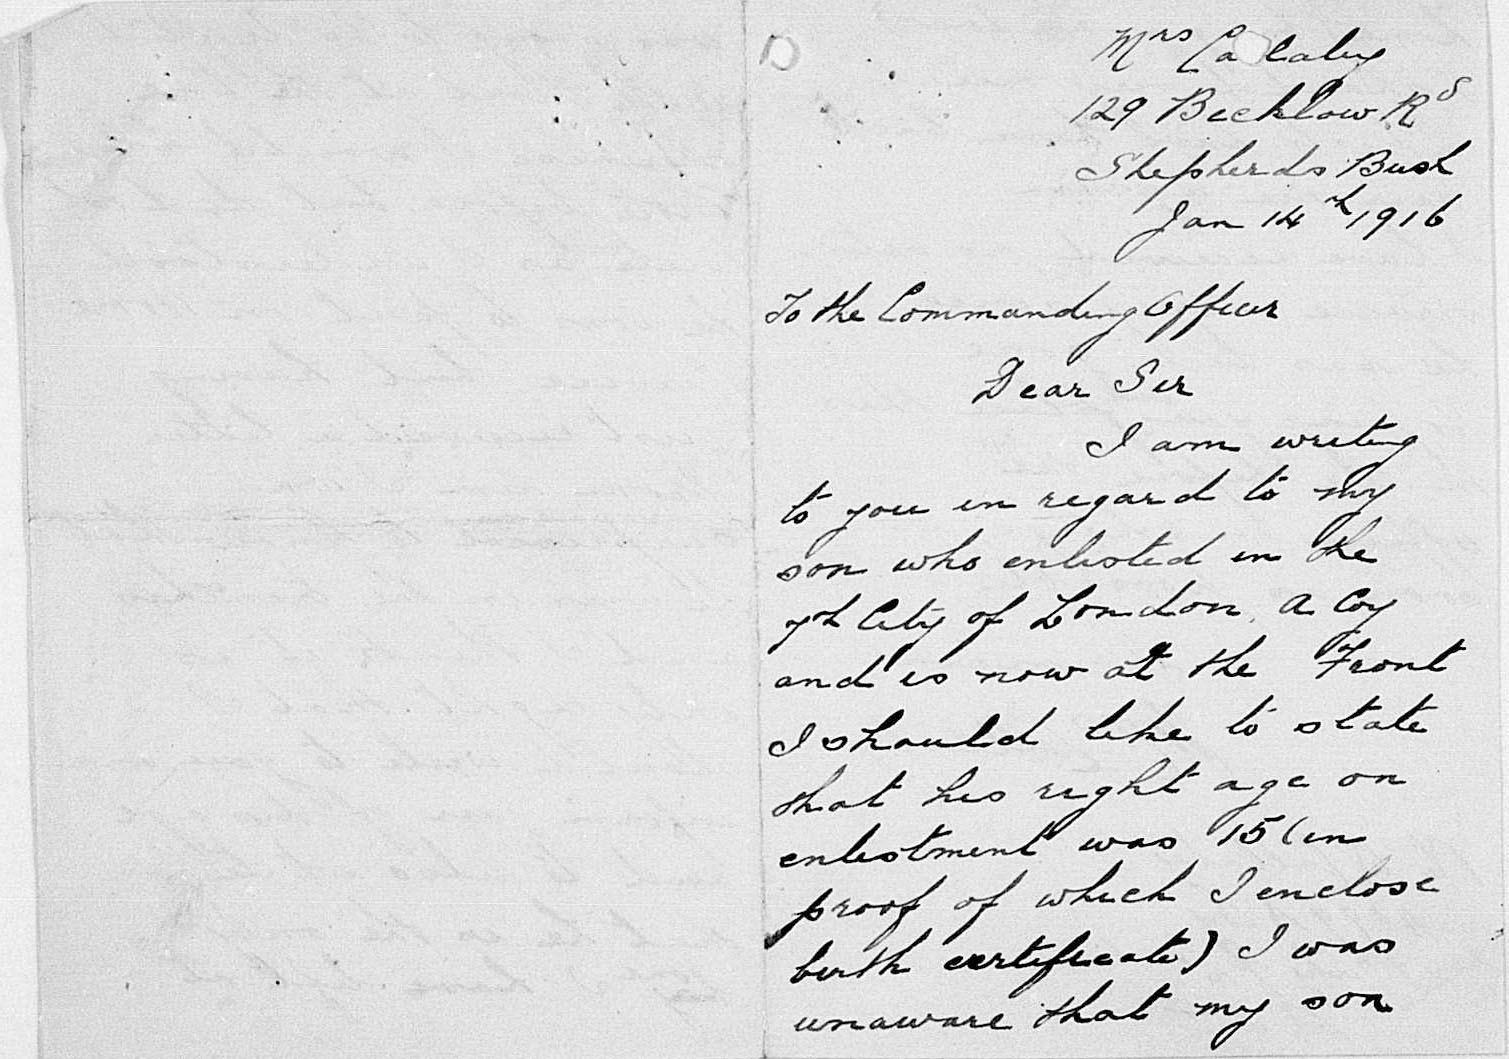 Mrs
129 Becklow Rd
Shepherds Bush
Jan 14th 1916
To the Commanding Officer
Dear Sir
I am writing
to you in regard to my
son who enlisted in the
7th City of London, A Coy
and is now at the Front
I should like to state
that his right age on
enlistment was 15 (in
proof of which I enclose
birth certificate) I was
unaware that my son